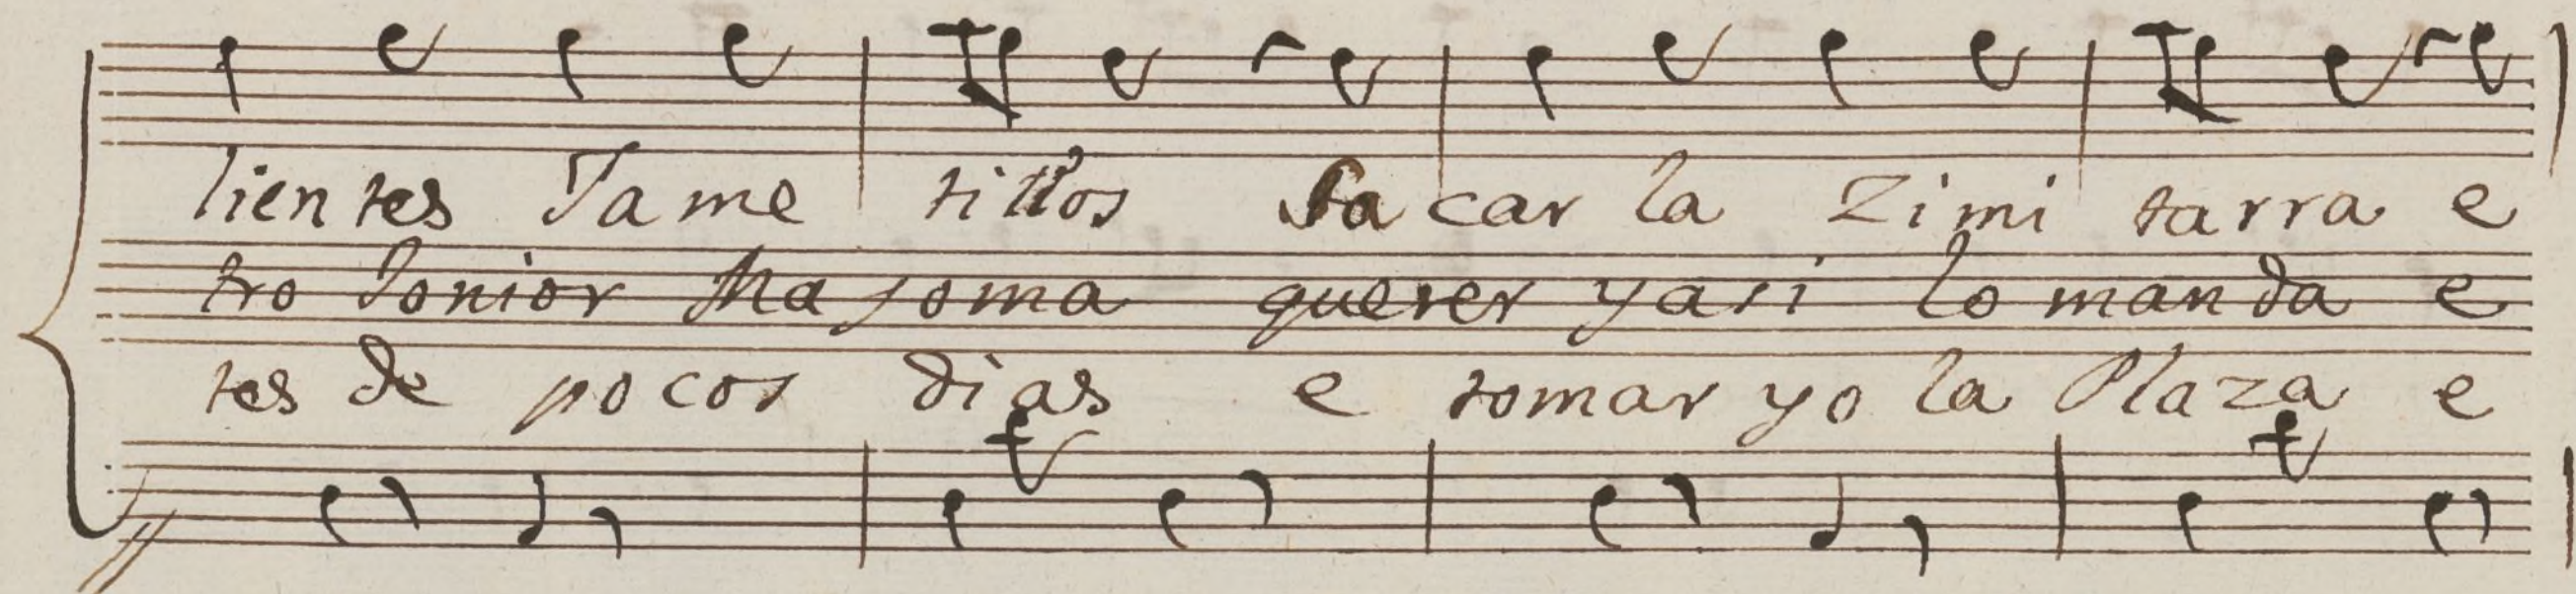 lien tes Ja me tillos sa car la Zi mi tarra e
tro Sonior Ma joma querer y asi lo manda e
tes de pocos dias e tomar yo la Plaza e